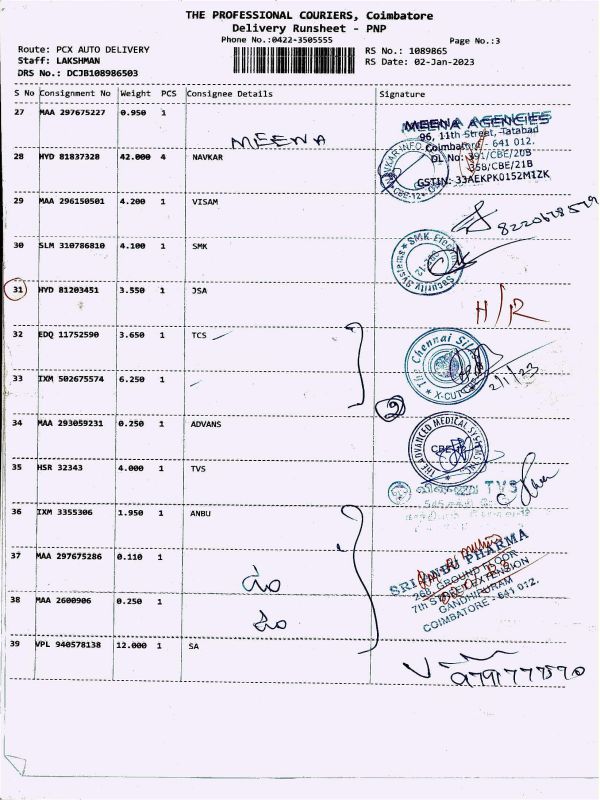 THE PROFESSIONAL COURIERS, Coimbatore
Delivery Runsheet - PNP
Phone No.:0422-3505555
Page No.:3
Route: PCX AUTO DELIVERY
RS No.: 1089865
Staff: LAKSHMAN
RS Date: 02-Jan-2023
DRS No.: DCJB108986503
S No Consignment No Weight PCS Consignee Details Signature
27 MAA 297675227 0.950 1
MEENA
MEENA AGENCIES
96, 11th Street, Tatabad
Coimbatore - 641 012.
DL No: 391/CBE/20B
358/CBE/21B
GSTIN: 33AEKPK0152M1ZK
28 HYD 81837328 42.000 4 NAVKAR
29 MAA 296150501 4.200 1 VISAM
30 SLM 310786810 4.100 1 SMK
31 HYD 81203451 3.550 1 JSA
H/R
32 EDQ 11752590 3.650 1 TCS
The Chennai Sil
X-CUT
2/1/23
33 IXM 502675574 6.250 1
2
34 MAA 293059231 0.250 1 ADVANS
THE ADVANCED MEDICAL SYSTEMS
35 HSR 32343 4.000 1 TVS
TVS
36 IXM 3355306 1.950 1 ANBU
37 MAA 297675286 0.110 1
SRI NANDU PHARMA
268, GROUND FLOOR
7th STREET EXTENSION
GANDHIPURAM
COIMBATORE - 641 012.
38 MAA 2600906 0.250 1
39 VPL 940578138 12.000 1 SA
9791777570